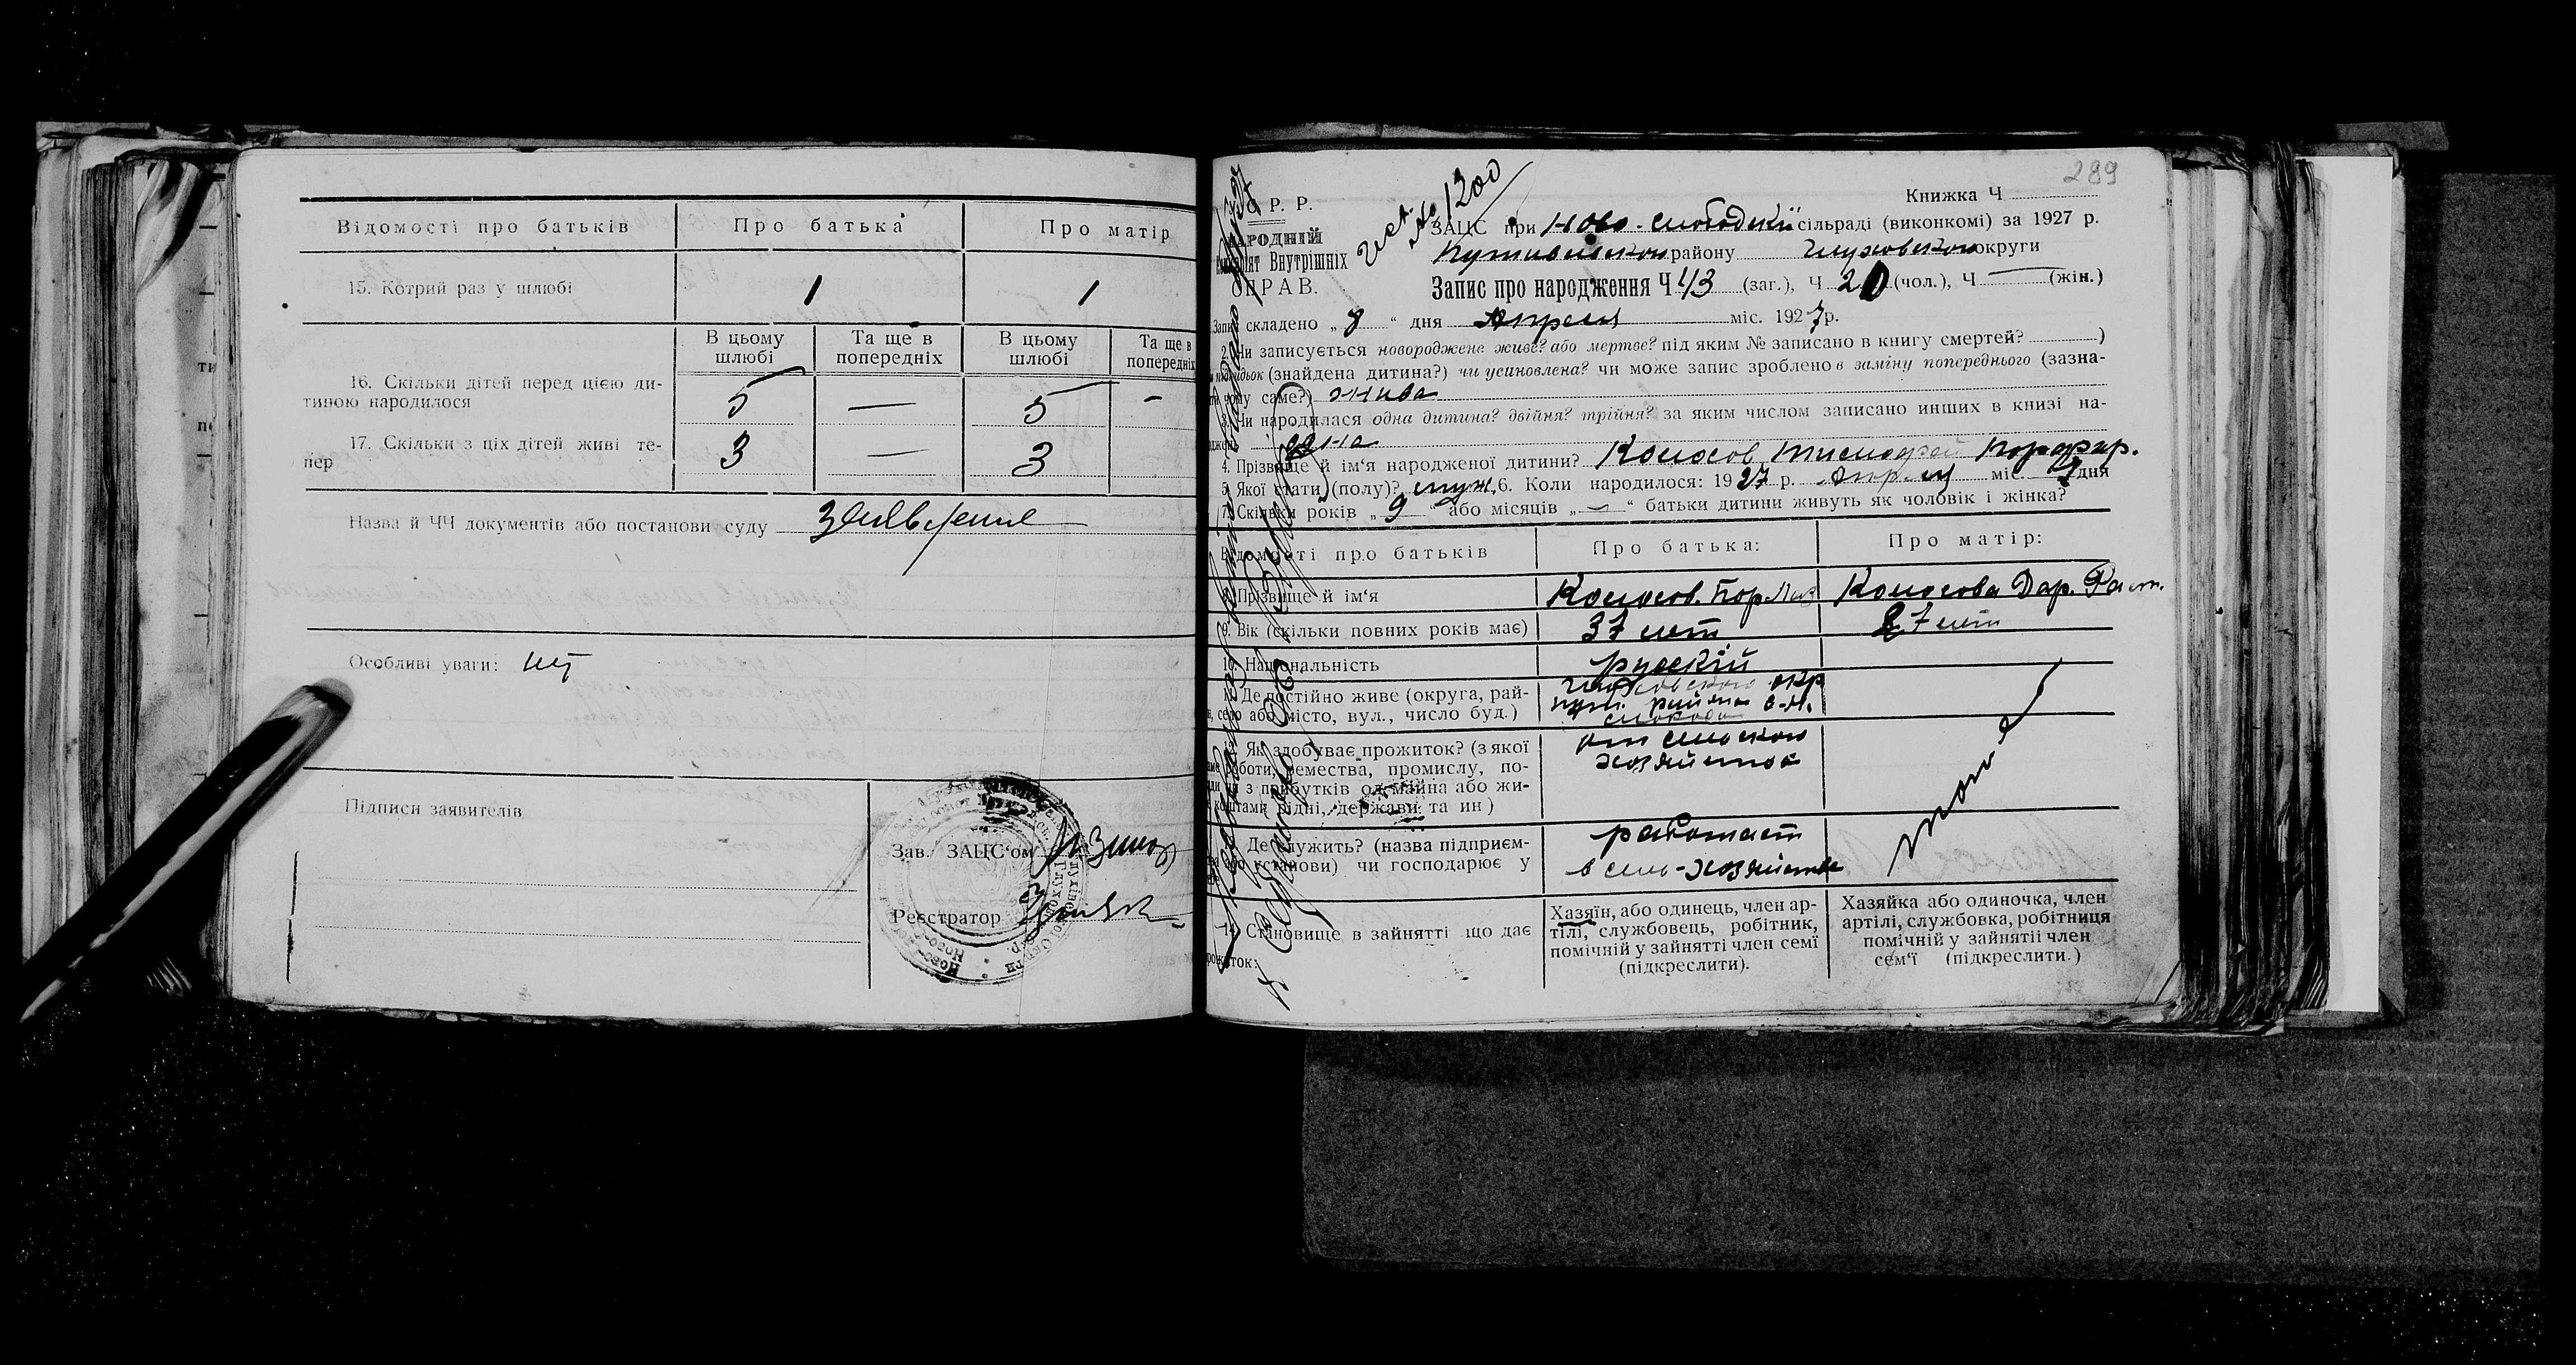 Відомості про батьків
Про батька
Про матір
15. Котрий раз у шлюбі
1
1
В цьому шлюбі
Та ще в попередніх
В цьому шлюбі
Та ще в попередніх
16. Скільки дітей перед цією ди-
тиною народилося
5 — 5 -
17. Скільки з ціх дітей живі те-
пер
3 — 3
Назва й ЧЧ документів або постанови суду
Особливі уваги:
Підписи заявителів
Зав. ЗАЦС'ом
Реєстратор
289
№ 1200
Р. Р.
Книжка Ч
НАРОДНІЙ
ЗАЦС при Ново-слободскій сільраді (виконкомі) за 1927 р.
Внутрішніх
Путивльского району Глуховского округи
СПРАВ.
Запис про народження Ч 43 (заг.), Ч 20 (чол.), Ч — (жін.)
складено „ 8 “ дня Апреля міс. 1927 р.
2. Чи записується новороджене живе? або мертве? під яким № записано в книгу смертей? )
(знайдена дитина?) чи усиновлена? чи може запис зроблено в заміну попереднього (зазна-
чому саме?) жива
3. Чи народилася одна дитина? двійня? трійня? за яким числом записано инших в книзі на-
одна
4. Прізвище й ім'я народженої дитини? Колосов
5. Якої стати (полу)? муж. 6. Коли народилося: 1927 р. апреля міс. дня
7. Скільки років „ 9 “ або місяців „ — “ батьки дитини живуть як чоловік і жінка?
Відомості про батьків
Про батька:
Про матір:
8. Прізвище й ім'я
Колосов. Пор
Колосова Дар.
9. Вік (скільки повних років має)
37 лет
27 лет
10. Національність
русскій
11. Де постійно живе (округа, рай-
село або місто, вул., число буд.)
Глуховского окр
пут. района с-Н.
слобода
12. Як здобуває прожиток? (з якої
роботи, ремества, промислу, по-
з прибутків од майна або жи-
коштами рідні, держави та ин)
от сельского
хозяйства
Де служить? (назва підприєм-
установи) чи господарює у
работает
в сель-хозяйстве
тоже
14. Становище в зайнятті що дає
прожиток:
Хазяїн, або одинець, член ар-
тілі, службовець, робітник,
помічній у зайнятті член семї
(підкреслити).
Хазяйка або одиночка, член
артілі, службовка, робітниця
помічній у зайнятії член
сем'ї (підкреслити.)